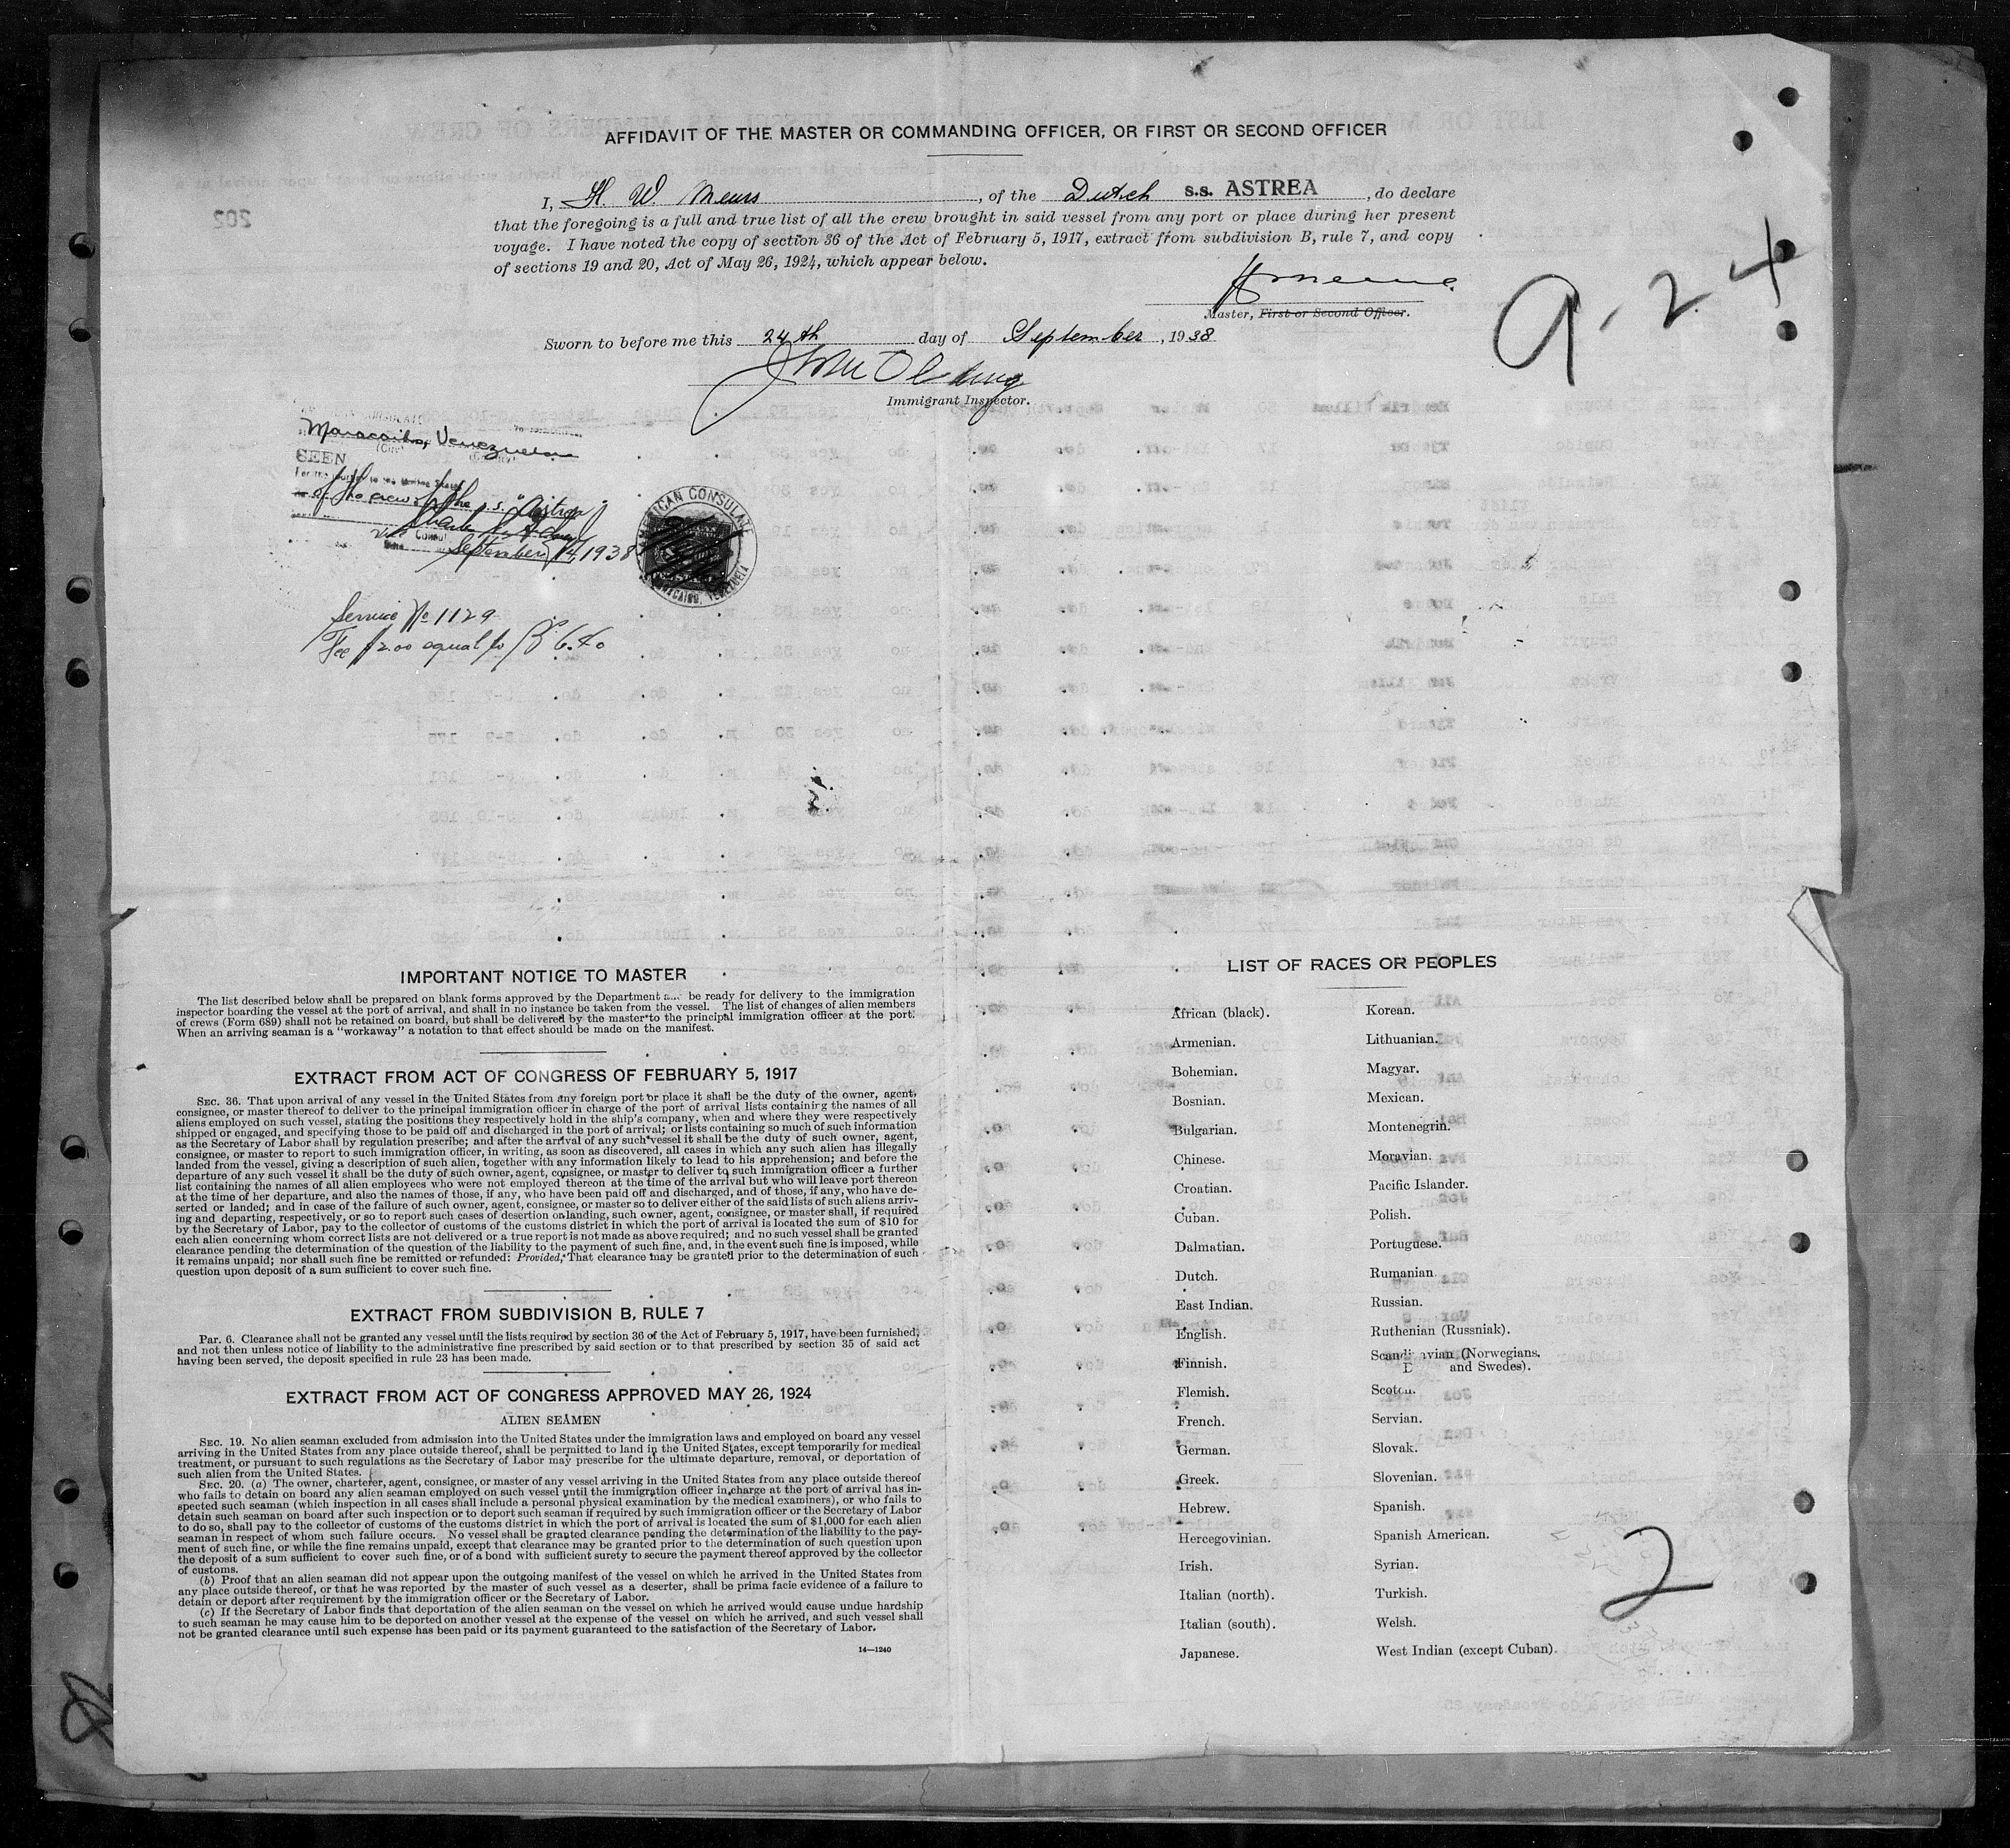 AFFIDAVIT OF THE MASTER OR COMMANDING OFFICER, OR FIRST OR SECOND OFFICER
I, H. W. Meurs, of the Dutch s.s. ASTREA, do declare
that the foregoing is a full and true list of all the crew brought in said vessel from any port or place during her present
voyage. I have noted the copy of section 36 of the Act of February 5, 1917, extract from subdivision B, rule 7, and copy
of sections 19 and 20, Act of May 26, 1924, which appear below.
Master, First or Second Officer.
9-24
Sworn to before me this 24th day of September, 1938
Immigrant Inspector.
Maracaibo, Venezuela
SEEN
of the crew of the s.s. "Astrea"
Consul
September 14, 1938
AMERICAN CONSULATE
MARACAIBO, VENEZUELA
Service No 1129
Fee $2.00 equal to Bs 6.40
IMPORTANT NOTICE TO MASTER
The list described below shall be prepared on blank forms approved by the Department and be ready for delivery to the immigration
inspector boarding the vessel at the port of arrival, and shall in no instance be taken from the vessel. The list of changes of alien members
of crews (Form 689) shall not be retained on board, but shall be delivered by the master to the principal immigration officer at the port.
When an arriving seaman is a "workaway" a notation to that effect should be made on the manifest.
EXTRACT FROM ACT OF CONGRESS OF FEBRUARY 5, 1917
SEC. 36. That upon arrival of any vessel in the United States from any foreign port or place it shall be the duty of the owner, agent,
consignee, or master thereof to deliver to the principal immigration officer in charge of the port of arrival lists containing the names of all
aliens employed on such vessel, stating the positions they respectively hold in the ship's company, when and where they were respectively
shipped or engaged, and specifying those to be paid off and discharged in the port of arrival; or lists containing so much of such information
as the Secretary of Labor shall by regulation prescribe; and after the arrival of any such vessel it shall be the duty of such owner, agent,
consignee, or master to report to such immigration officer, in writing, as soon as discovered, all cases in which any such alien has illegally
landed from the vessel, giving a description of such alien, together with any information likely to lead to his apprehension; and before the
departure of any such vessel it shall be the duty of such owner, agent, consignee, or master to deliver to such immigration officer a further
list containing the names of all alien employees who were not employed thereon at the time of the arrival but who will leave port thereon
at the time of her departure, and also the names of those, if any, who have been paid off and discharged, and of those, if any, who have de-
serted or landed; and in case of the failure of such owner, agent, consignee, or master so to deliver either of the said lists of such aliens arriv-
ing and departing, respectively, or so to report such cases of desertion or landing, such owner, agent, consignee, or master shall, if required
by the Secretary of Labor, pay to the collector of customs of the customs district in which the port of arrival is located the sum of $10 for
each alien concerning whom correct lists are not delivered or a true report is not made as above required; and no such vessel shall be granted
clearance pending the determination of the question of the liability to the payment of such fine, and, in the event such fine is imposed, while
it remains unpaid; nor shall such fine be remitted or refunded: Provided, That clearance may be granted prior to the determination of such
question upon deposit of a sum sufficient to cover such fine.
EXTRACT FROM SUBDIVISION B, RULE 7
Par. 6. Clearance shall not be granted any vessel until the lists required by section 36 of the Act of February 5, 1917, have been furnished,
and not then unless notice of liability to the administrative fine prescribed by said section or to that prescribed by section 35 of said act
having been served, the deposit specified in rule 23 has been made.
EXTRACT FROM ACT OF CONGRESS APPROVED MAY 26, 1924
ALIEN SEAMEN
SEC. 19. No alien seaman excluded from admission into the United States under the immigration laws and employed on board any vessel
arriving in the United States from any place outside thereof, shall be permitted to land in the United States, except temporarily for medical
treatment, or pursuant to such regulations as the Secretary of Labor may prescribe for the ultimate departure, removal, or deportation of
such alien from the United States.
SEC. 20. (a) The owner, charterer, agent, consignee, or master of any vessel arriving in the United States from any place outside thereof
who fails to detain on board any alien seaman employed on such vessel until the immigration officer in charge at the port of arrival has in-
spected such seaman (which inspection in all cases shall include a personal physical examination by the medical examiners), or who fails to
detain such seaman on board after such inspection or to deport such seaman if required by such immigration officer or the Secretary of Labor
to do so, shall pay to the collector of customs of the customs district in which the port of arrival is located the sum of $1,000 for each alien
seaman in respect of whom such failure occurs. No vessel shall be granted clearance pending the determination of the liability to the pay-
ment of such fine, or while the fine remains unpaid, except that clearance may be granted prior to the determination of such question upon
the deposit of a sum sufficient to cover such fine, or of a bond with sufficient surety to secure the payment thereof approved by the collector
of customs.
(b) Proof that an alien seaman did not appear upon the outgoing manifest of the vessel on which he arrived in the United States from
any place outside thereof, or that he was reported by the master of such vessel as a deserter, shall be prima facie evidence of a failure to
detain or deport after requirement by the immigration officer or the Secretary of Labor.
(c) If the Secretary of Labor finds that deportation of the alien seaman on the vessel on which he arrived would cause undue hardship
to such seaman he may cause him to be deported on another vessel at the expense of the vessel on which he arrived, and such vessel shall
not be granted clearance until such expense has been paid or its payment guaranteed to the satisfaction of the Secretary of Labor.
14—1240
LIST OF RACES OR PEOPLES
African (black).
Armenian.
Bohemian.
Bosnian.
Bulgarian.
Chinese.
Croatian.
Cuban.
Dalmatian.
Dutch.
East Indian.
English.
Finnish.
Flemish.
French.
German.
Greek.
Hebrew.
Hercegovinian.
Irish.
Italian (north).
Italian (south).
Japanese.
Korean.
Lithuanian.
Magyar.
Mexican.
Montenegrin.
Moravian.
Pacific Islander.
Polish.
Portuguese.
Rumanian.
Russian.
Ruthenian (Russniak).
Scandinavian (Norwegians,
and Swedes).
Scotch.
Servian.
Slovak.
Slovenian.
Spanish.
Spanish American.
Syrian.
Turkish.
Welsh.
West Indian (except Cuban).
2